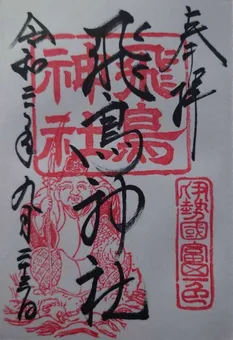 奉拝
飛鳥神社
飛鳥神社
伊勢國富一色
令和三年九月二十三日